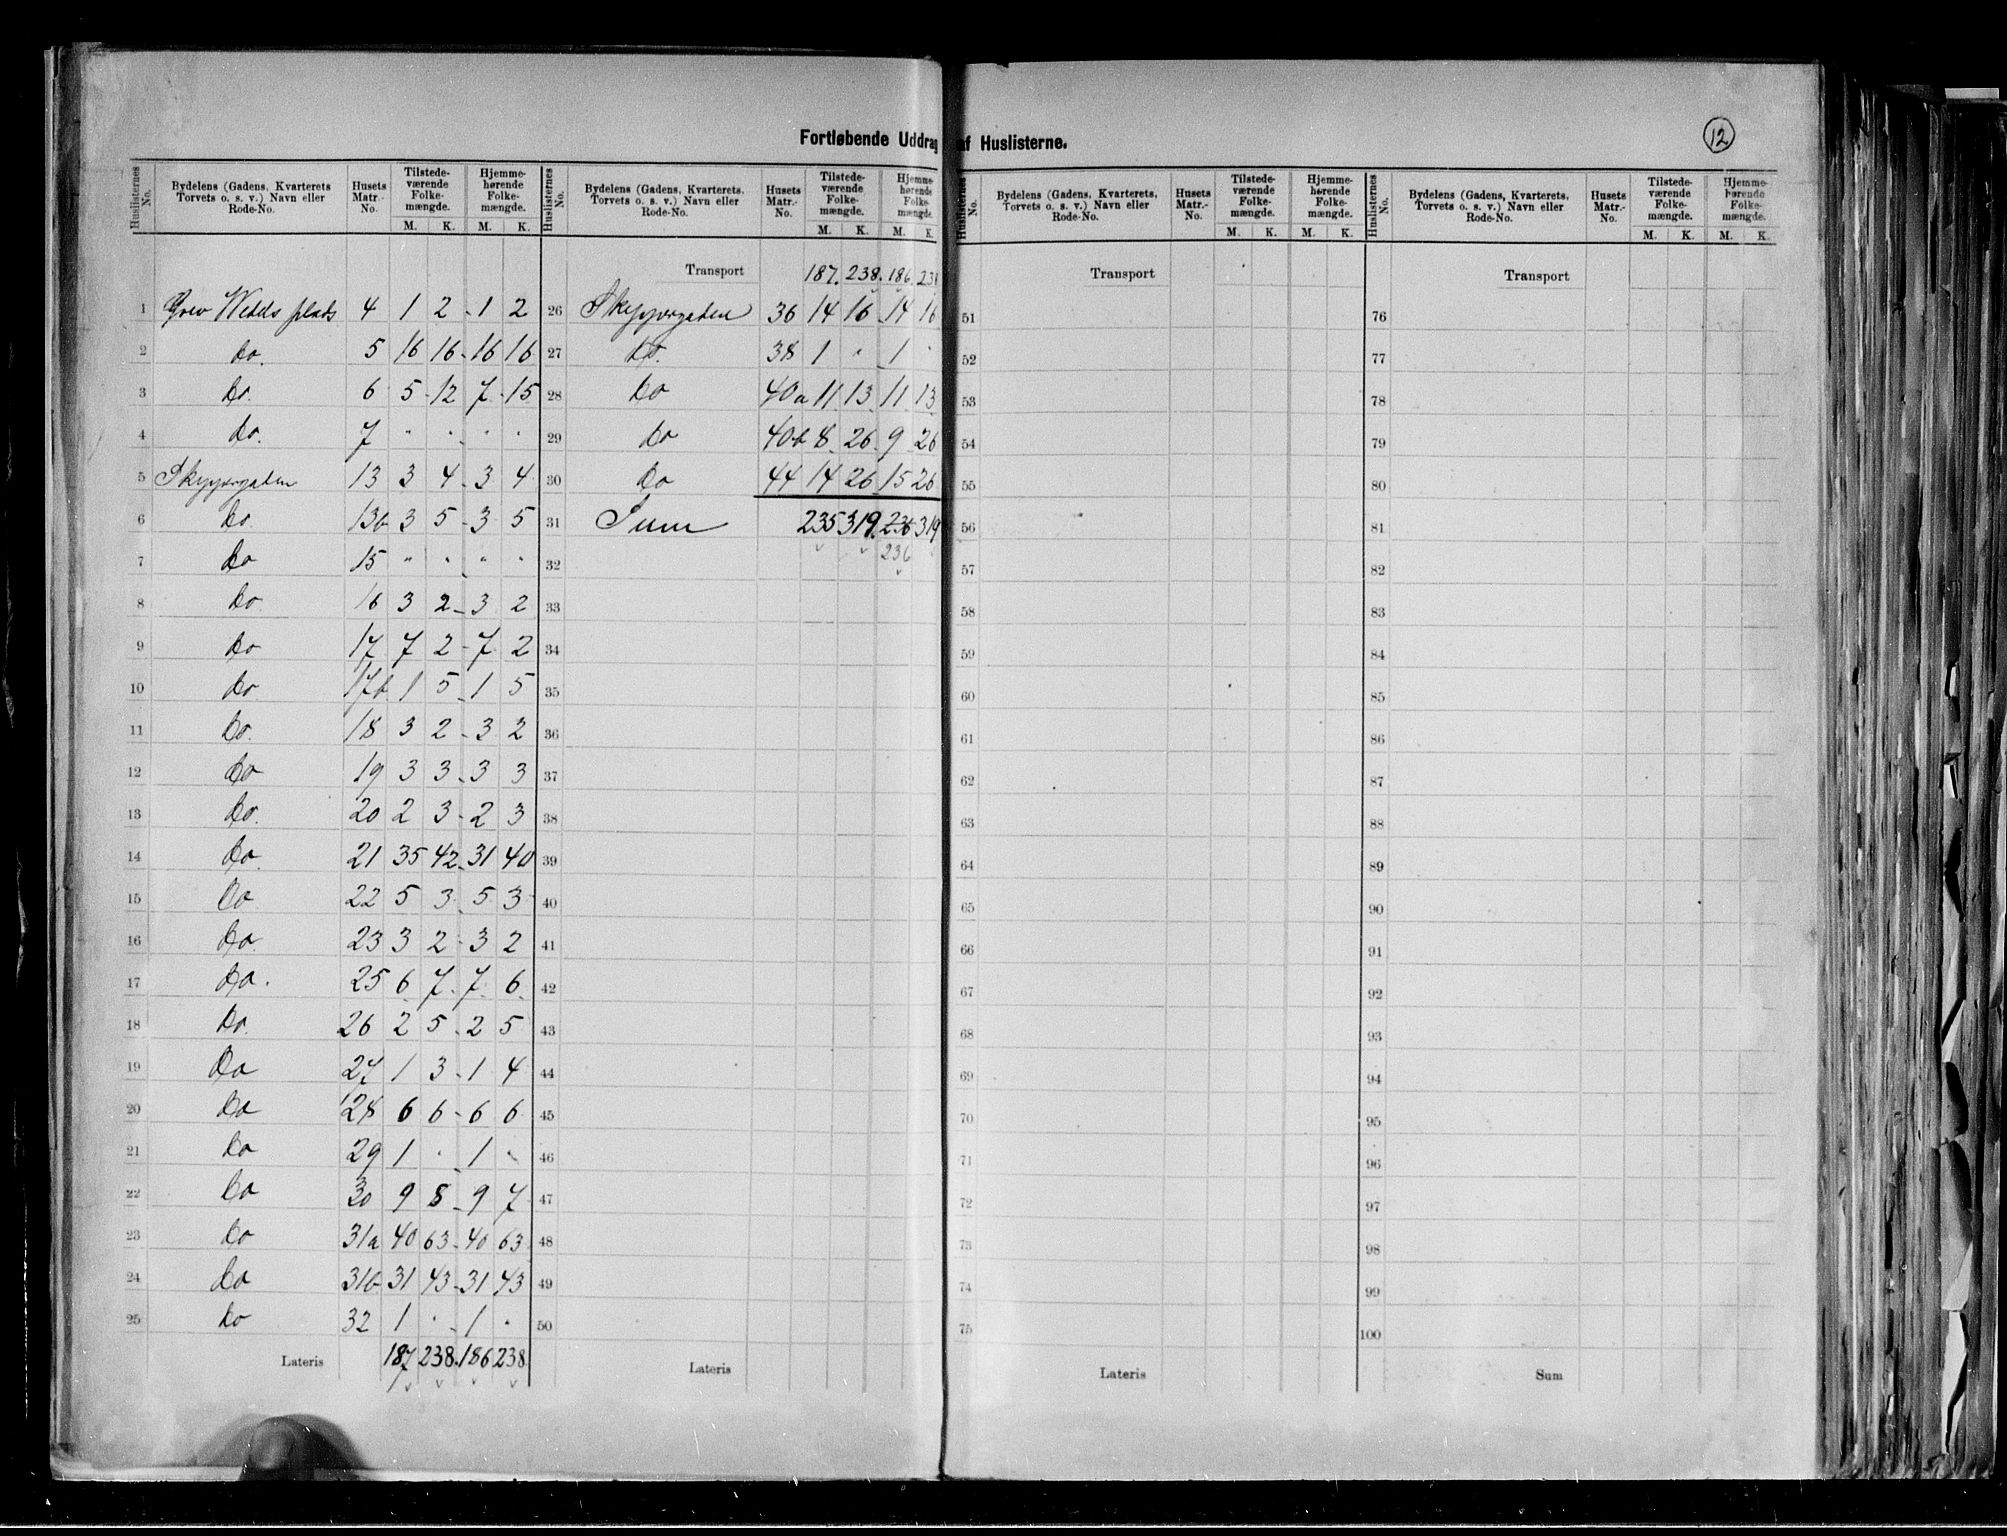 Fortløbende Uddrag af Huslisterne.
12
Huslisternes No. Bydelens (Gadens, Kvarterets Torvets o. s. v.) Navn eller Rode-No. Husets Matr.-No. Tilstedeværende Folkemængde. M. K. Hjemmehørende Folkemængde. M. K.
1 Grev Wedels plads 4 1 2 1 2
2 do. 5 16 16 16 16
3 do. 6 5 12 7 15
4 do. 7 " " " "
5 Skippergaden 13 3 4 3 4
6 do. 13b 3 5 3 5
7 do 15 " " " "
8 do. 16 3 2 3 2
9 do 17 7 2 7 2
10 do 17b 1 5 1 5
11 do. 18 3 2 3 2
12 do 19 3 3 3 3
13 do. 20 2 3 2 3
14 do. 21 35 42 31 40
15 do. 22 5 3 5 3
16 do. 23 3 2 3 2
17 do. 25 6 7 7 6
18 do. 26 2 5 2 5
19 do 27 1 3 1 4
20 do 28 6 6 6 6
21 do 29 1 " 1 "
22 do 30 9 8 9 7
23 do 31a 40 63 40 63
24 do 31b 31 43 31 43
25 do 32 1 " 1 "
Lateris 187 238 186 238
Huslisternes No. Bydelens (Gadens, Kvarterets, Torvets o. s. v.) Navn eller Rode-No. Husets Matr.-No. Tilstedeværende Folkemængde. M. K. Hjemmehørende Folkemængde. M. K.
Transport 187 238 186 238
26 Skippergaden 36 14 16 14 16
27 do. 38 1 " 1 "
28 do 40a 11 13 11 13
29 do 40b 8 26 9 26
30 do 44 14 26 15 26
31 Sum 235 319 236 319
32 236
33
34
35
36
37
38
39
40
41
42
43
44
45
46
47
48
49
50
Lateris
Huslisternes No. Bydelens (Gadens, Kvarterets, Torvets o. s. v.) Navn eller Rode-No. Husets Matr.-No. Tilstedeværende Folkemængde. M. K. Hjemmehørende Folkemængde. M. K.
Transport
51
52
53
54
55
56
57
58
59
60
61
62
63
64
65
66
67
68
69
70
71
72
73
74
75
Lateris
Huslisternes No. Bydelens (Gadens, Kvarterets, Torvets o. s. v.) Navn eller Rode-No. Husets Matr.-No. Tilstedeværende Folkemængde. M. K. Hjemmehørende Folkemængde. M. K.
Transport
76
77
78
79
80
81
82
83
84
85
86
87
88
89
90
91
92
93
94
95
96
97
98
99
100
Sum